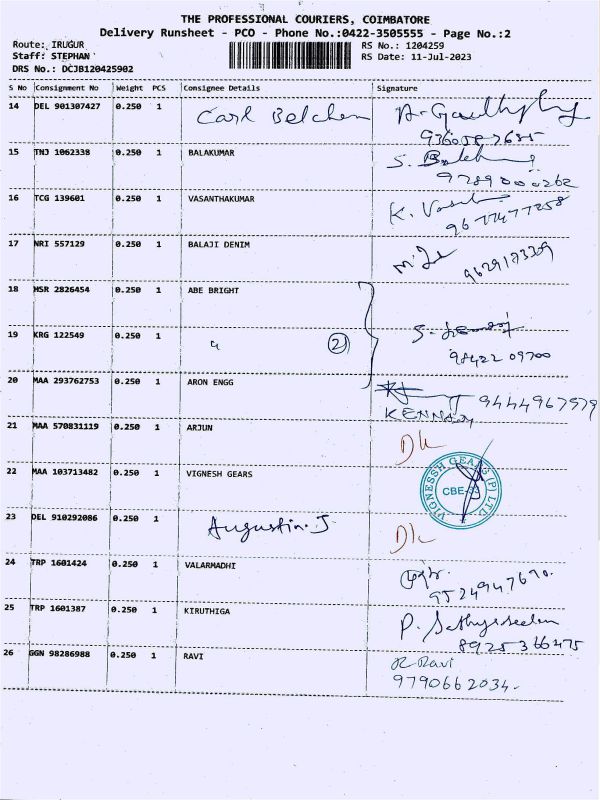 THE PROFESSIONAL COURIERS, COIMBATORE
Delivery Runsheet - PCO - Phone No.:0422-3505555 - Page No.:2
Route: IRUGUR RS No.: 1204259
Staff: STEPHAN RS Date: 11-Jul-2023
DRS No.: DCJB120425902
S No Consignment No Weight PCS Consignee Details Signature
14 DEL 901307427 0.250 1 Carl Belchem
15 TNJ 1062338 0.250 1 BALAKUMAR
9789000262
16 TCG 139601 0.250 1 VASANTHAKUMAR
9677477258
17 NRI 557129 0.250 1 BALAJI DENIM
18 MSR 2826454 0.250 1 ABE BRIGHT
19 KRG 122549 0.250 1 2
98422 09700
20 MAA 293762753 0.250 1 ARON ENGG 9444967979
KENNADY
21 MAA 570831119 0.250 1 ARJUN
22 MAA 103713482 0.250 1 VIGNESH GEARS VIGNESSH GEARS (P) LTD. CBE-
23 DEL 910292086 0.250 1 Augustin.J
24 TRP 1601424 0.250 1 VALARMADHI
9524947690.
25 TRP 1601387 0.250 1 KIRUTHIGA
8925366475
26 GGN 98286988 0.250 1 RAVI R Ravi
9790662034.